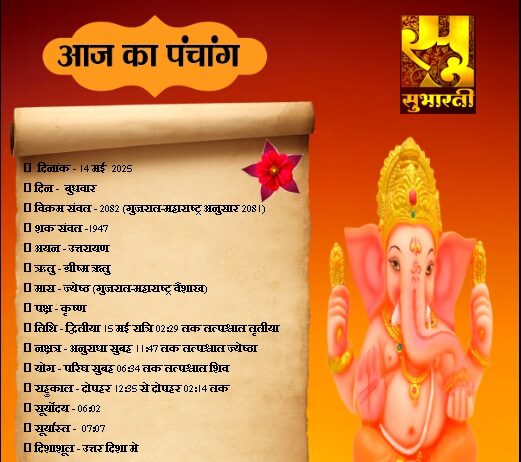 आज का पंचांग
सुभारती
दिनाक - 14 मई 2025
दिन - बुधवार
विक्रम संवत - 2082 (गुजरात-महाराष्ट्र अनुसार 2081)
शक संवत -1947
अयन - उत्तरायण
ऋतु - ग्रीष्म ऋतु
मास - ज्येष्ठ (गुजरात-महाराष्ट्र वैशाख)
पक्ष - कृष्ण
तिथि - द्वितीया 15 मई रात्रि 02:29 तक तत्पश्चात तृतीया
नक्षत्र - अनुराधा सुबह 11:47 तक तत्पश्चात ज्येष्ठा
योग - परिघ सुबह 06:34 तक तत्पश्चात शिव
राहुकाल - दोपहर 12:35 से दोपहर 02:14 तक
सूर्योदय - 06:02
सूर्यास्त - 07:07
दिशाशूल - उत्तर दिशा मे